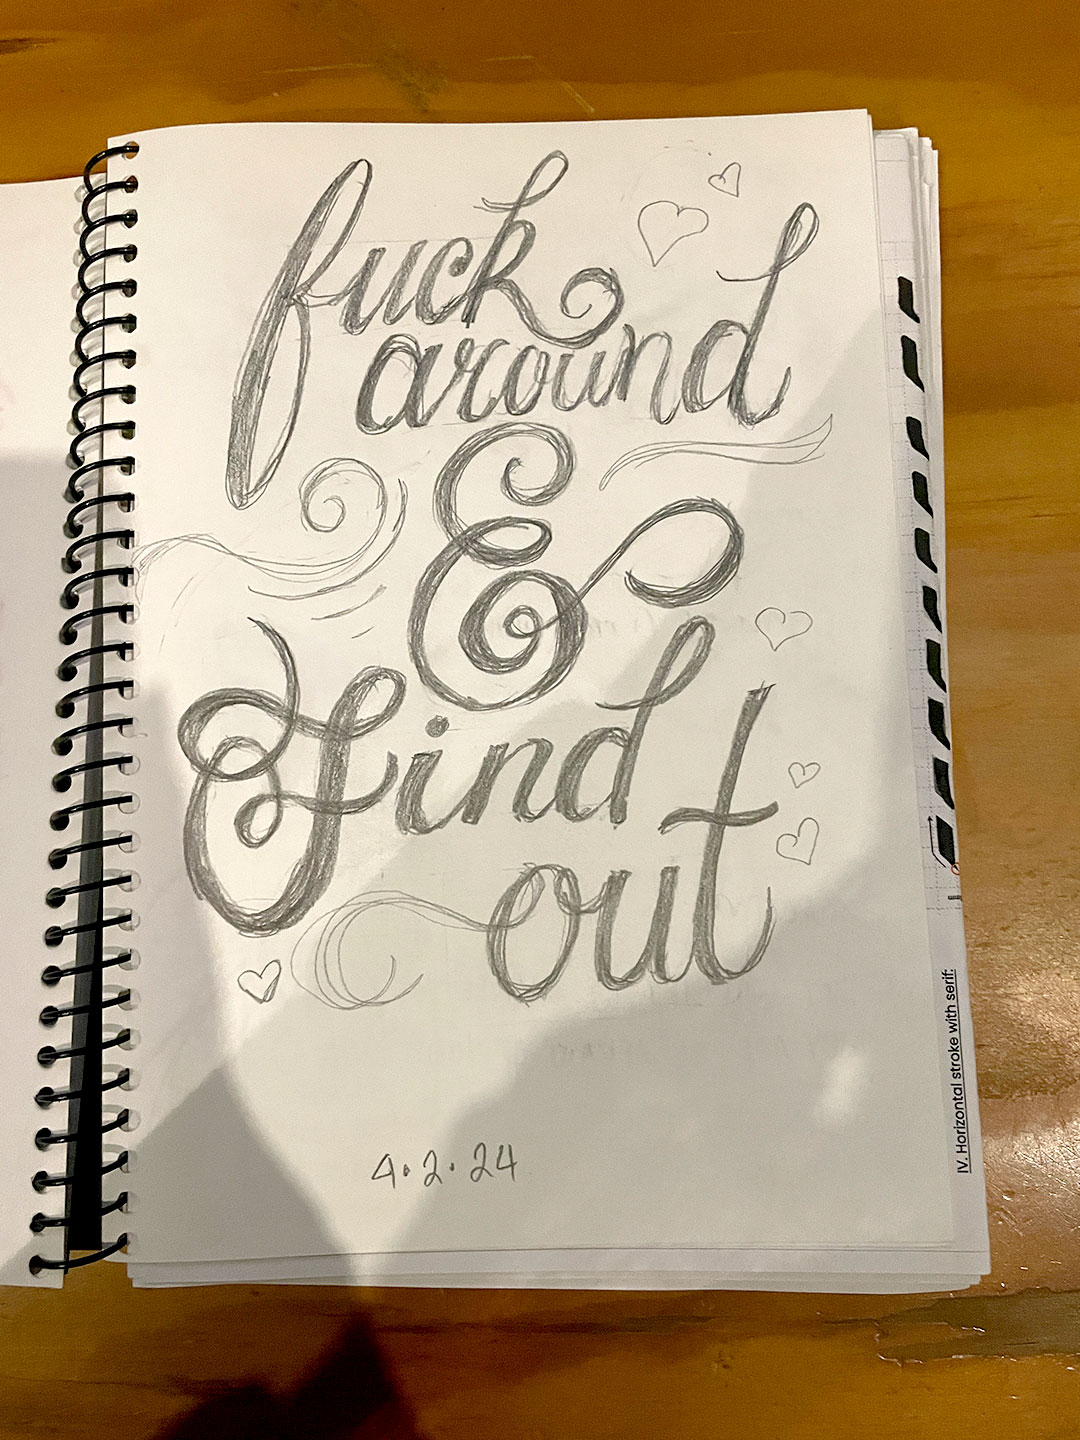 fuck
around
&
find
out
4·2·24
IV. Horizontal stroke with serif: